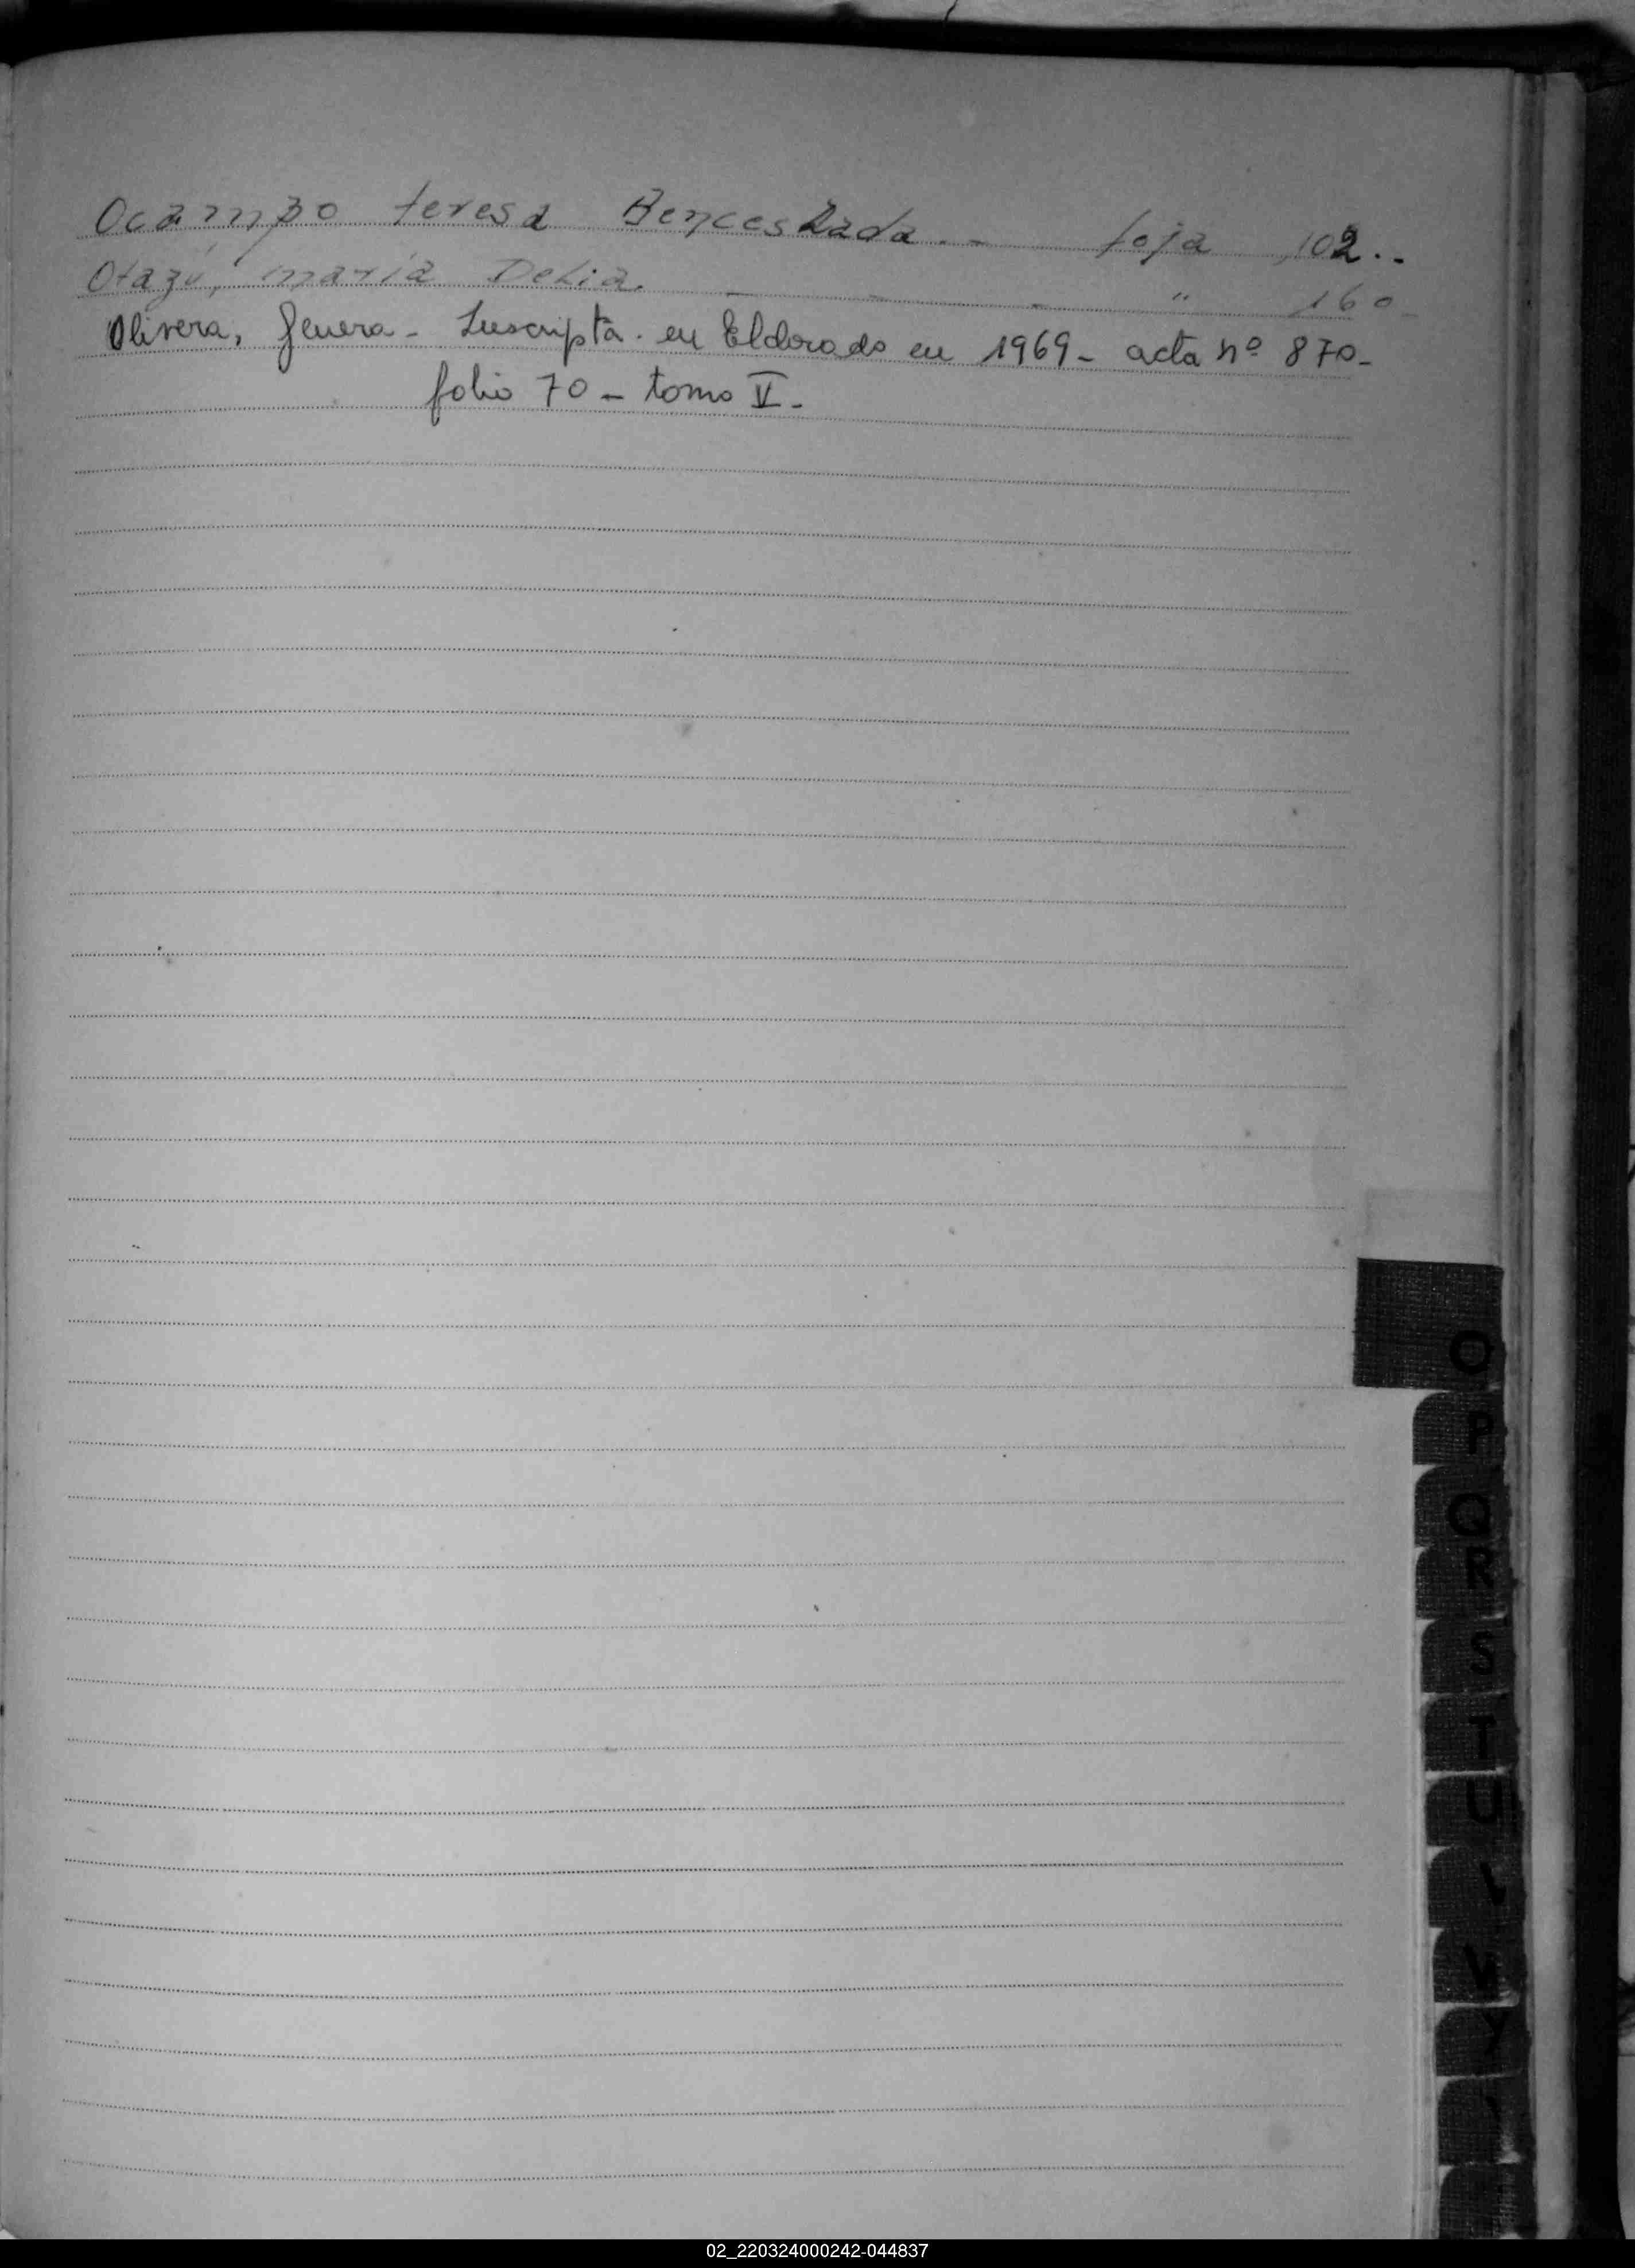 Ocampo teresa Benceslada. - foja 102..
Otazú, maría Delia. - - - " 160
Olivera, Genera - Inscripta. en Eldorado en 1969 - acta nº 870 -
folio 70 - tomo V -
O
P
Q
R
S
T
U
V
Y
02_220324000242-044837